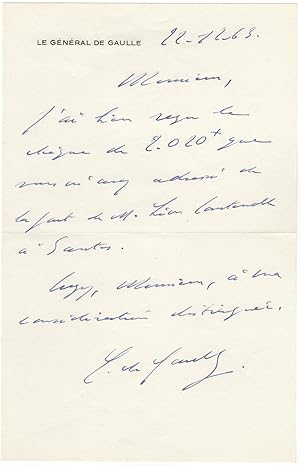 LE GÉNÉRAL DE GAULLE
22-12-63.
Monsieur,
J'ai bien reçu le
chèque de 2.020 que
vous m'avez adressé de
la part de M. Léon
à Santos.
Croyez, Monsieur, à ma
considération distinguée.
C. de Gaulle.